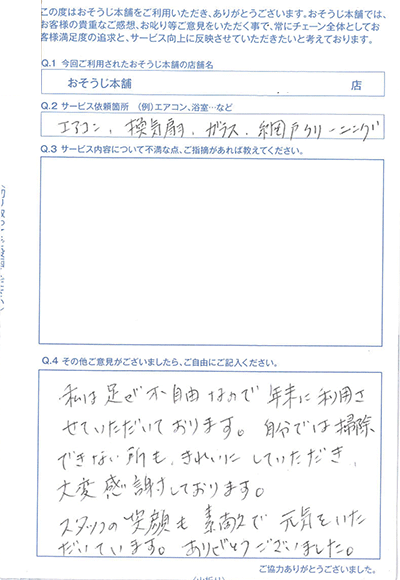 この度はおそうじ本舗をご利用いただき、ありがとうございます。おそうじ本舗では、
お客様の貴重なご感想、お叱り等ご意見をいただく事で、常にチェーン全体としてお
客様満足度の追求と、サービス向上に反映させていただきたいと考えております。
Q.1 今回ご利用されたおそうじ本舗の店舗名
おそうじ本舗 店
Q.2 サービス依頼箇所 (例)エアコン、浴室…など
エアコン、換気扇、ガラス、網戸クリーニング
Q.3 サービス内容について不満な点、ご指摘があれば教えてください。
Q.4 その他ご意見がございましたら、ご自由にご記入ください。
私は足が不自由なので年末に利用さ
せていただいております。自分では掃除
できない所も、きれいにしていただき、
大変感謝しております。
スタッフの笑顔も素敵で元気をいた
だいています。ありがとうございました。
ご協力ありがとうございました。